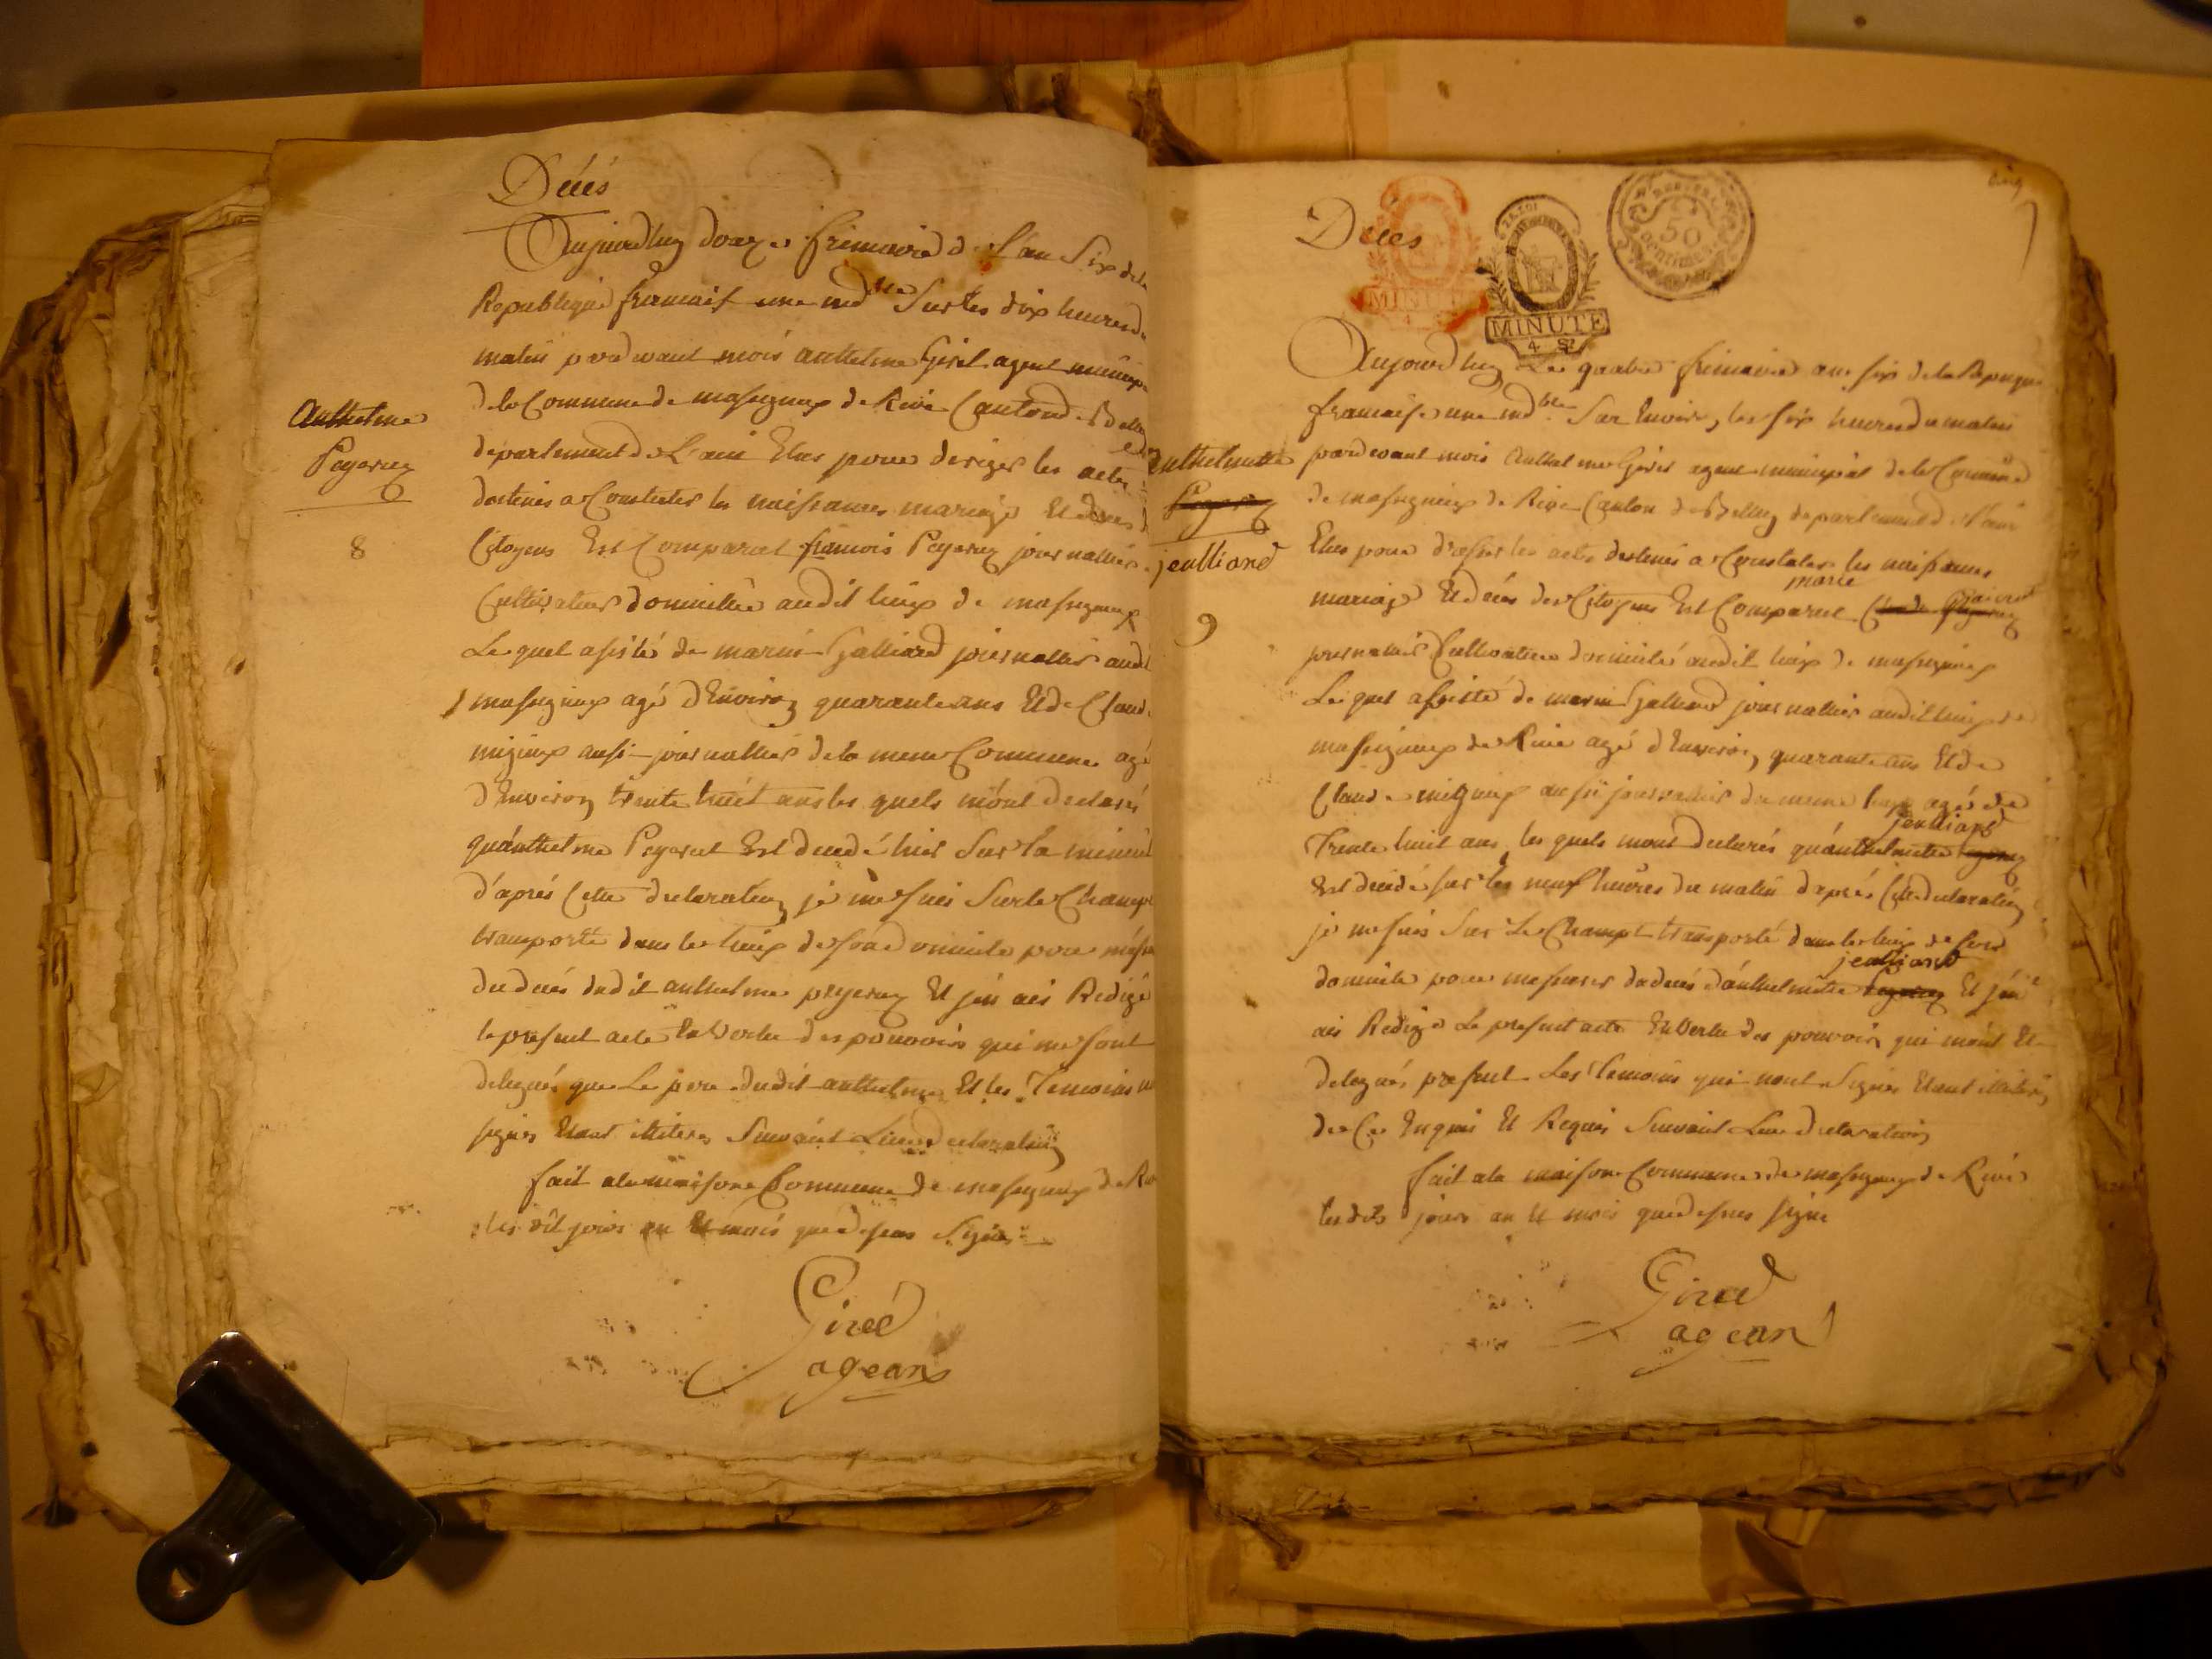 Décés
Aujourdhuy douze frimaire de L'an Six de la
Republique francaise une indble Sur les dix heures du
matin pardevant mois anthelme Girel agent municip
de la Commune de massigneux de Rive Canton de Belley
departement de L'ain Elus pour deriger les actes
destinés a Constater les naissances mariage Et décés des
Citoyens Est Comparut francois Peyeruz journallier
Cultivateur domicillié audit lieux de massigneux
Le quel assisté de marin Galliard journallier audit
massigneux agé d'Environ quarante ans Et de Claude
migieux aussi journallier de la meme Commune agé
d'Environ trente huit ans les quels mónt declarés
quánthelme Peyeruz Est decedé hier Sur la minuit
d'aprés Cette declaration je me suis Sur le Champt
transporté dans le lieux de son domicile pour
du decés dudit anthelme peyeruz Et jén ais Redigé
le present acte En Vertu des pouvoirs qui me sont
delegués que Le pere dudit anthelme Et les Temoins
signés Etant illiteres Suivant Leur declaration
fait a la maison Commune de massigneux de Rive
les dit jours an Et mois que dessus Signé
Girel
agean
Anthelme
Peyeruz
8
Décés
MINUTE
MINUTE
50
Aujourdhuy Le quatre frimaire an six de la Repuque
francaise une indble Sur Environ les six heures du matin
pardevant mois Anthelme Girel agent municipal de la Commune
de massigneux de Rive Canton de Belley departement de l'ain
Elus pour dresser les actes destinés a Constater les naissances
mariage Et décés des Citoyens Est Comparut marie
journallier Cultivateur domicilié audit lieux de massigneux
Le quel assisté de marin Galliard journallier audit lieux de
massigneux de Rive agé d'Environ quarante ans Et de
Claude migieux aussi journallier du meme lieux agés de
Trente huit ans les quels mont declarés quánthelmette jeulliard
Est decedé sur les neuf heures du matin d'aprés Cette declaration
je me suis Sur Le Champt transporté dans le lieux de son
domicile pour massurer du decés d'ánthelmette jeulliard Et jén
ais Redigé Le present acte En Vertu des pouvoirs qui mónt Eté
delegués present Les Temoins qui nont Signés Etant illiterés
de Ce Enquis Et Requis Suivant Leur declaration
fait a la maison Commune de massigneux de Rive
les dits jours an Et mois que dessus signé
Girel
agean
anthelmette
Peyeruz
jeulliard
9